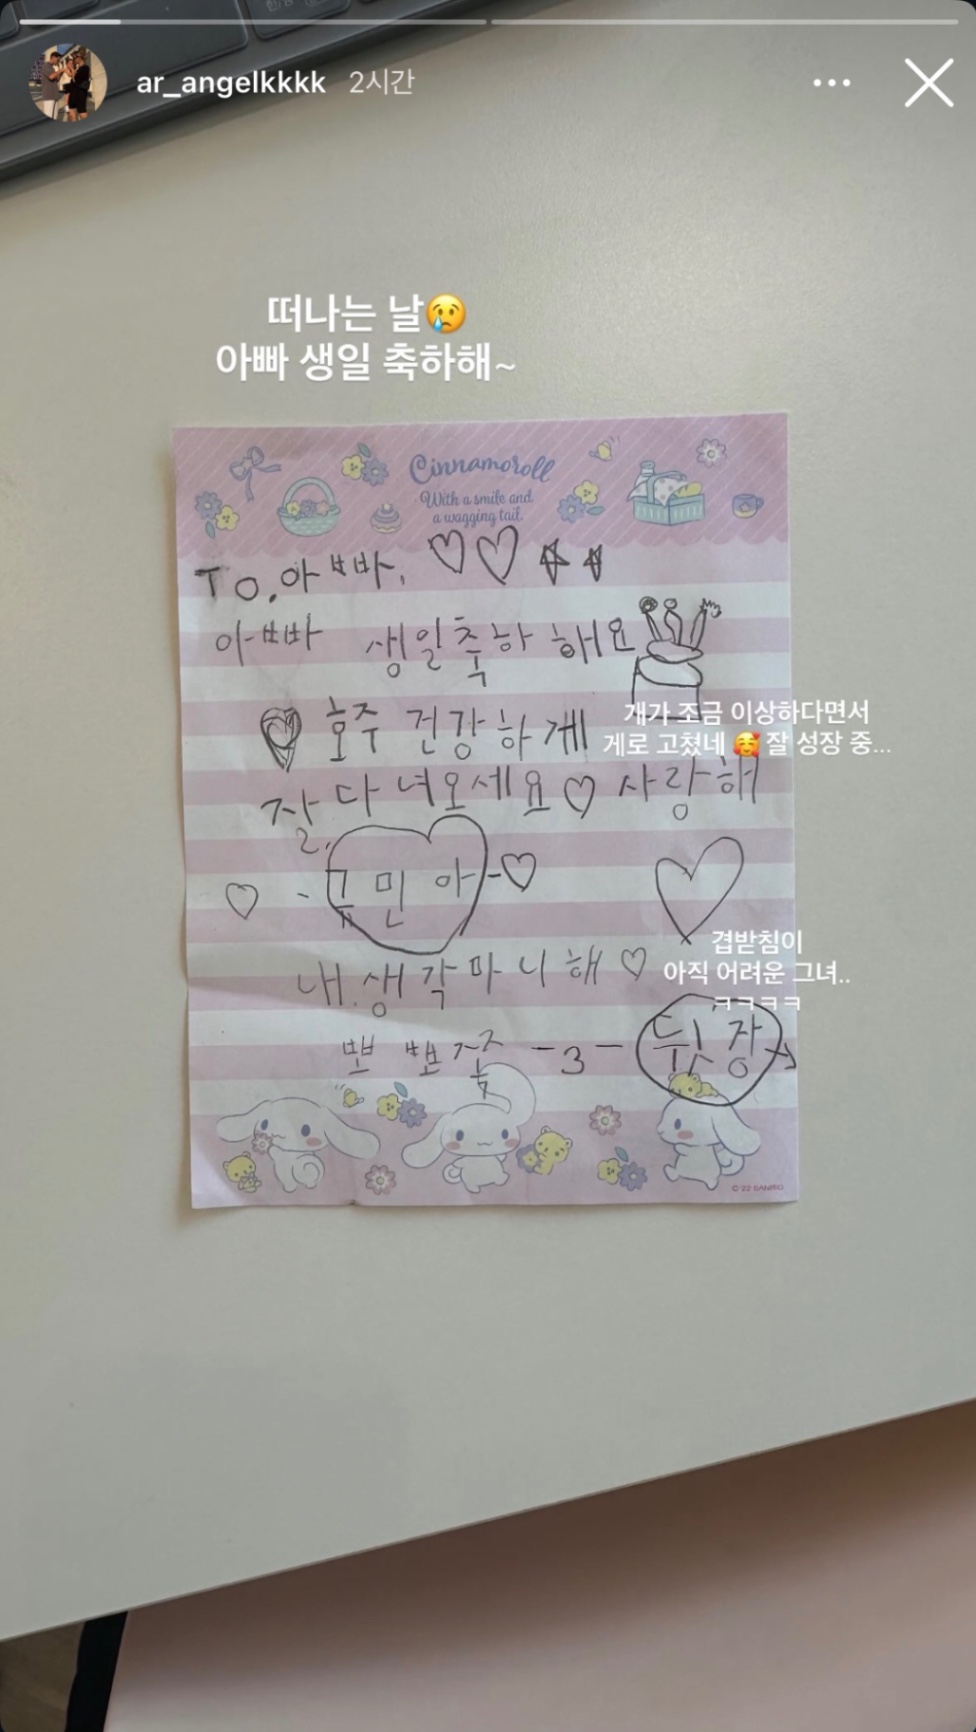 ar_angelkkkk 2시간
떠나는 날😢
아빠 생일 축하해~
Cinnamoroll
With a smile and
a wagging tail.
To.아빠. ♡♡☆☆
아빠 생일축하 해요
♡ 호주 건강하게
개가 조금 이상하다면서
게로 고쳤네 🥰 잘 성장 중...
잘 다녀오세요♡ 사랑해
♡ - 민아-♡
겹받침이
아직 어려운 그녀..
ㅋㅋㅋㅋ
내.생각마니해♡
뽀뽀쪽 -3- 뒷장→
©'22 SANRIO